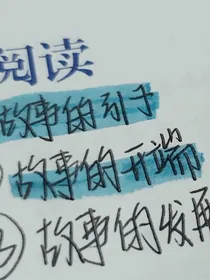 阅读
故事的引子
故事的开端
③ 故事的发展